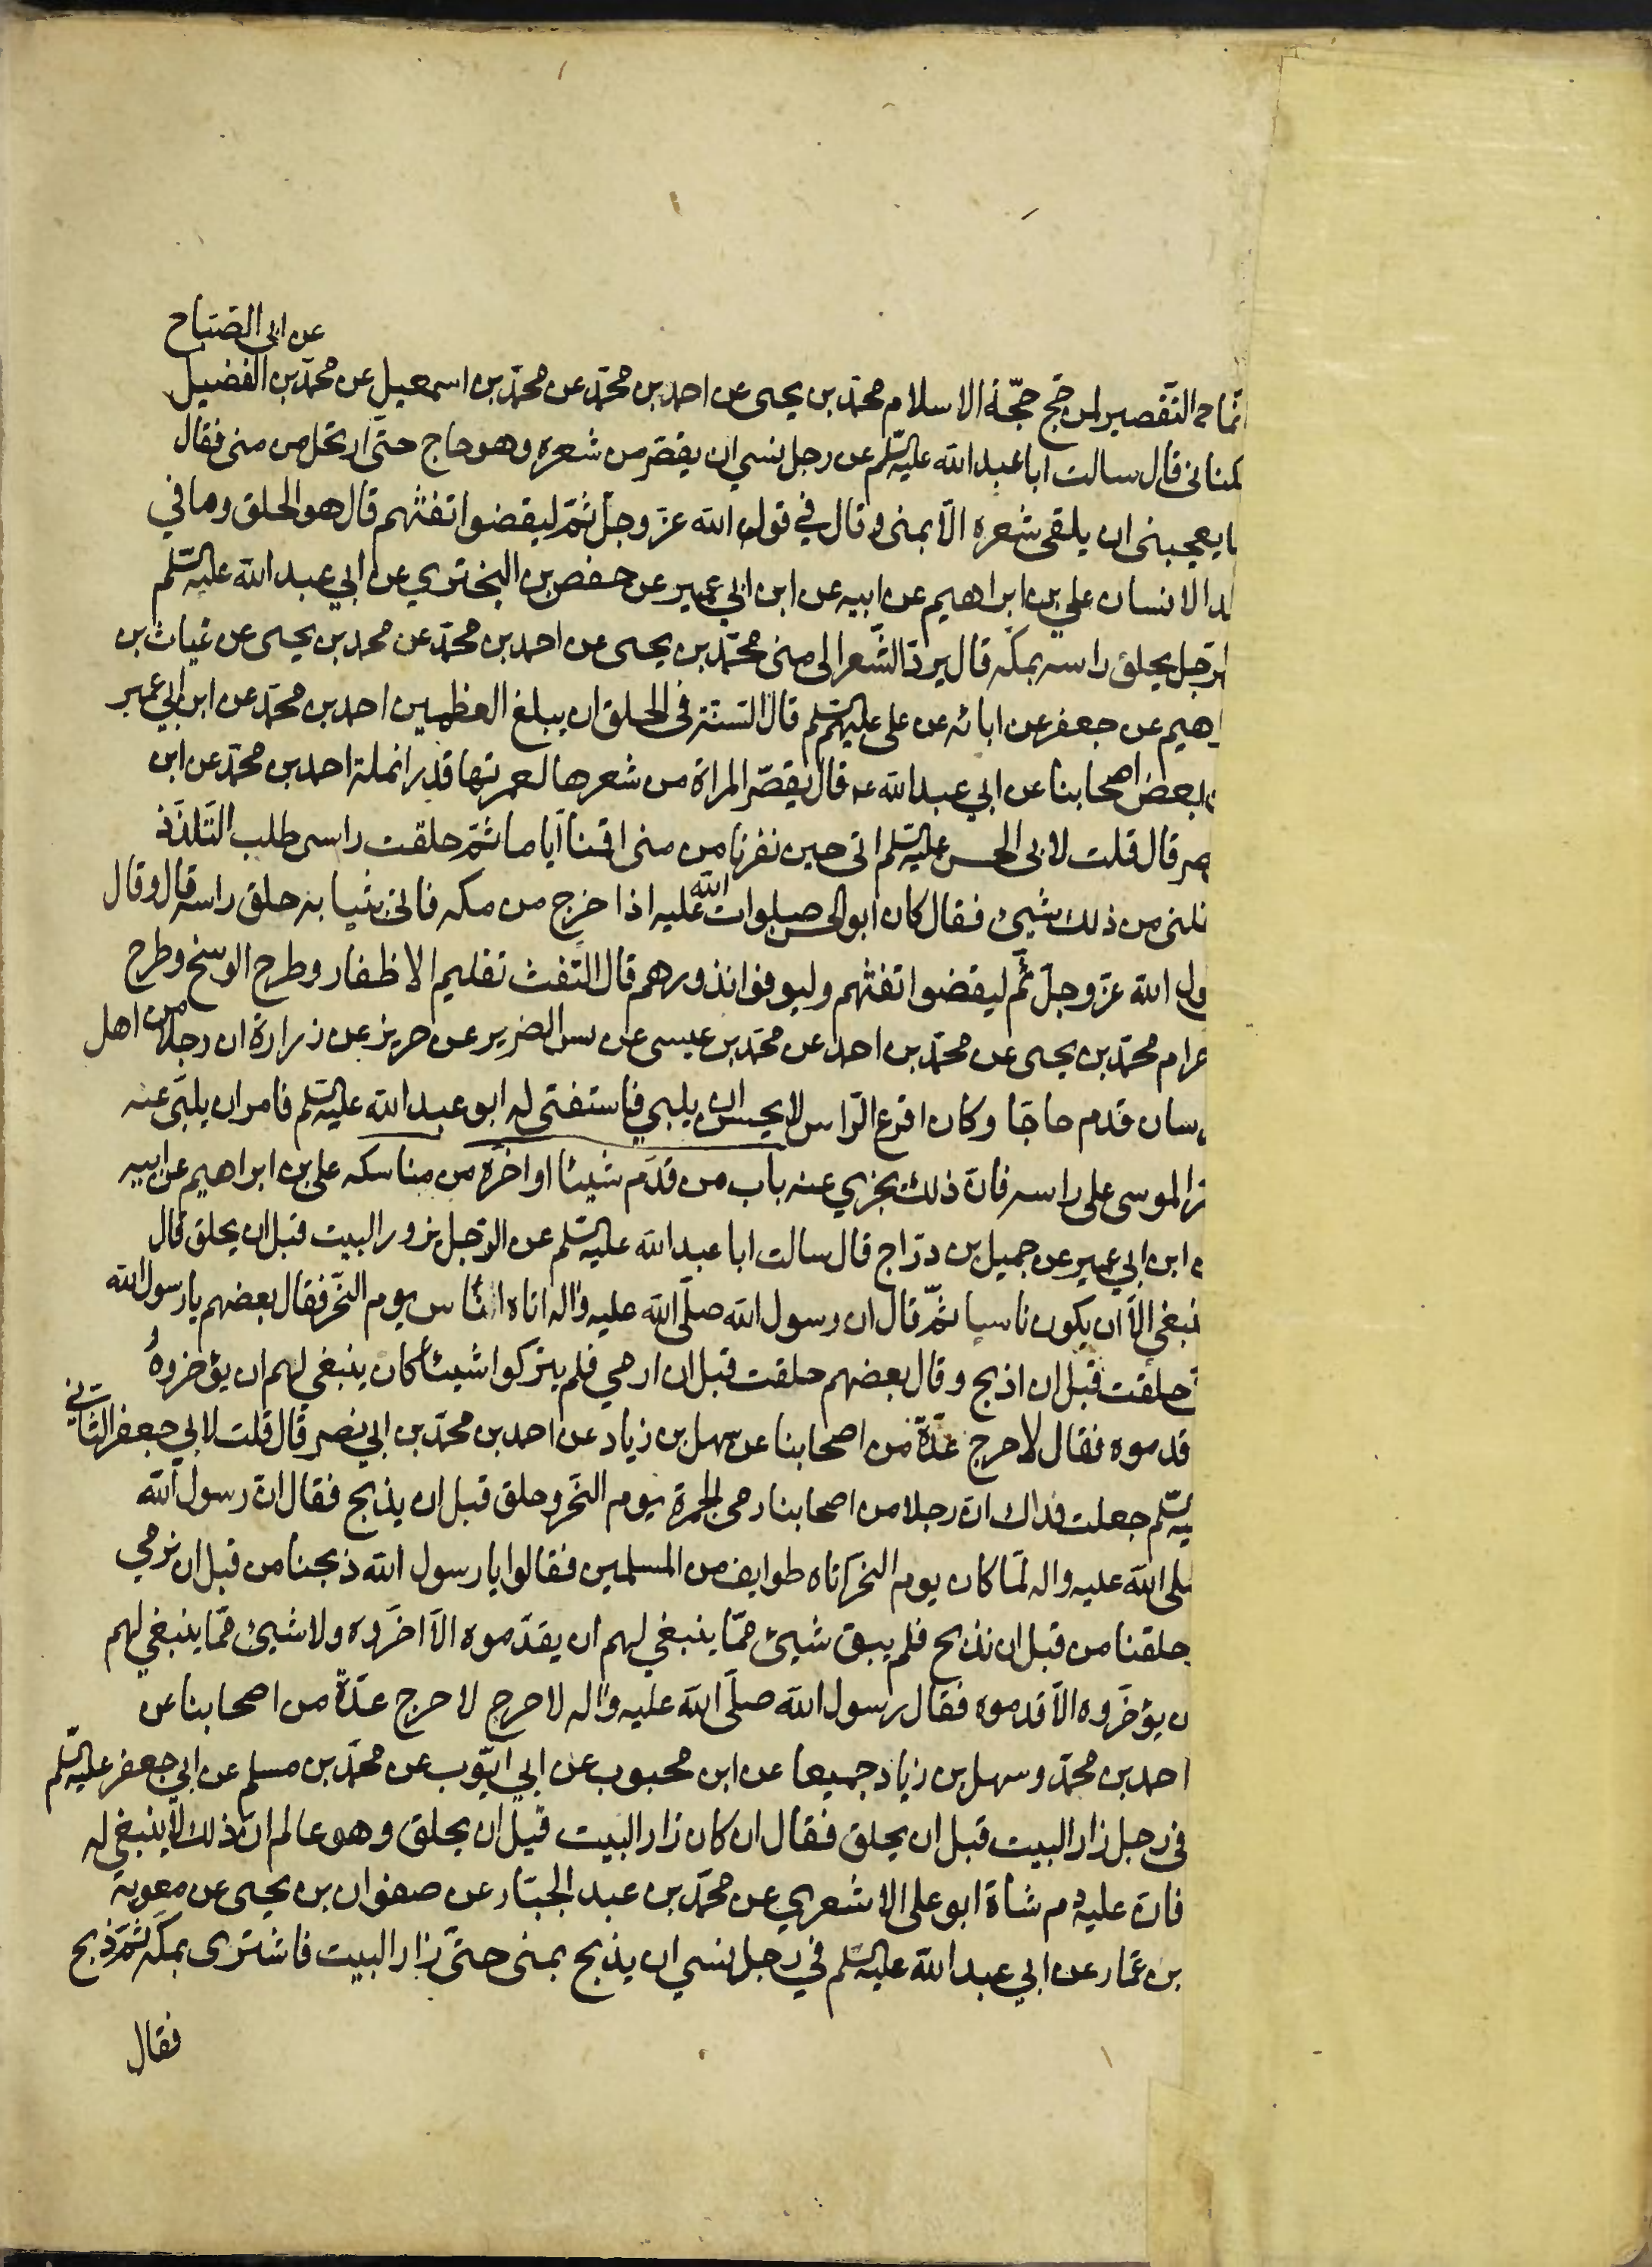 عن ابى الصّباح
انّما التّقصير لمن حجّ حجّة الاسلام محمّد بن يحيى عن احمد بن محمّد عن محمّد بن اسمعيل عن محمّد بن الفضيل
كنانى قال سالت ابا عبد الله عليه السّلم عن رجل نسي ان يقصّر من شعره وهو حاج حتّى ارتحل من منى فقال
ا يعجبنى ان يلقى شعره الّا بمنى وقال في قول الله عزّ وجلّ ثمّ ليقضوا تفثهم قال هو الحلق وما في
لد الانسان علي بن ابراهيم عن ابيه عن ابن ابي عمير عن حفص بن البختري عن ابي عبد الله عليه السّلم
الرّجل يحلق راسه بمكّه قال يردّ الشّعر الى منى محمّد بن يحيى عن احمد بن محمّد عن محمد بن يحيى عن غياث بن
راهيم عن جعفر عن ابائه عن على عليهم السّلم قال السّنّة فى الحلق ان يبلغ العظمين احمد بن محمّد عن ابن ابي عمير
بعض اصحابنا عن ابي عبد الله عه قال يقصّر المراة من شعرها لعمرتها قدر انملة احمد بن محمّد عن ابن
صر قال قلت لابى الحسن عليه السّلم انى حين نفرنا من منى اقمنا ايّاما ثمّ حلقت راسى طلب التّلذّذ
خلنى من ذلك شيئ فقال كان ابو الحسن صلوات الله عليه اذا خرج من مكه فاتى بثيابه حلق راسه قال وقال
ول الله عزّ وجلّ ثم ليقضوا تفثهم وليوفوا نذورهم قال التّفث تقليم الاظفار وطرح الوسخ وطرح
حرام محمّد بن يحيى عن محمّد بن احمد عن محمّد بن عيسى عن يس الضرير عن حريز عن زرارة ان رجلا من اهل
سان قدم حاجّا وكان اقرع الرّاس لا يحسن ان يلبي فاستفتى له ابو عبد الله عليه السّلم فامر ان يلبّى عنه
رّ الموسى على راسه فانّ ذلك يجزي عنه باب من قدّم شيئا او اخّره من مناسكه على بن ابراهيم عن ابيه
ن ابن ابي عمير عن جميل بن درّاج قال سالت ابا عبد الله عليه السّلم عن الرّجل يزور البيت قبل ان يحلق قال
ينبغي الّا ان يكون ناسيا ثمّ قال ان رسول الله صلّى الله عليه واله اتاه اناس يوم النّحر فقال بعضهم يا رسول الله
حلقت قبل ان اذبح وقال بعضهم حلقت قبل ان ارمي فلم يتركوا شيئا كان ينبغي لهم ان يؤخروهُ
قدموه فقال لا حرج عدّة من اصحابنا عن سهل بن زياد عن احمد بن محمّد بن ابي نصر قال قلت لابي جعفر الثّانى
يه السّلم جعلت فداك انّ رجلا من اصحابنا رمى الجمرة يوم النّحر وحلق قبل ان يذبح فقال انّ رسول الله
لى الله عليه واله لمّا كان يوم النحر اتاه طوايف من المسلمين فقالوا يا رسول الله ذبحنا من قبل ان نرمي
حلقنا من قبل ان نذبح فلم يبق شيئ ممّا ينبغي لهم ان يقدّموه الّا اخّروه ولا شيئ ممّا ينبغي لهم
ن يؤخّروه الّا قدموه فقال رسول الله صلّى الله عليه واله لا حرج لا حرج عدّة من اصحابنا عن
احمد بن محمّد وسهل بن زياد جميعا عن ابن محبوب عن ابي ايّوب عن محمّد بن مسلم عن ابي جعفر عليه السّلم
فى رجل زار البيت قبل ان يحلق فقال ان كان زار البيت قبل ان يحلق وهو عالم انّ ذلك لا ينبغي له
فان عليه دم شاة ابو على الاشعري عن محمّد بن عبد الجبّار عن صفوان بن يحيى عن معوية
بن عمّار عن ابي عبد الله عليه السّلم في رجل نسي ان يذبح بمنى حتّى زار البيت فاشترى بمكّه ثمّ ذبح
فقال